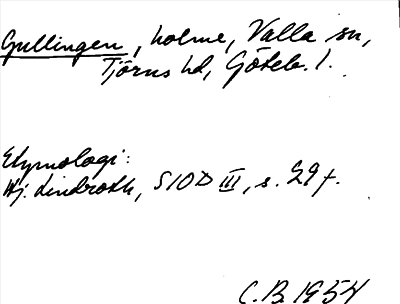 Gullingen, holme, Valla sn,
Tjörns hd, Göteb. l.
Etymologi:
Hj. Lindroth, SIOD III, s. 29 f.
C.B. 1954